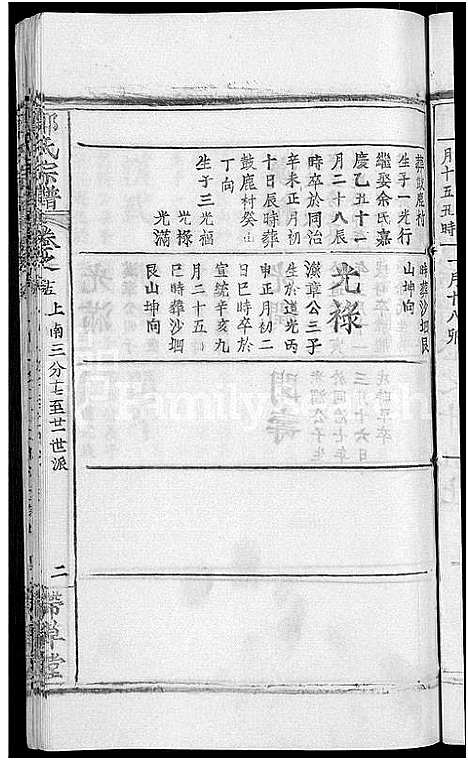 月十五丑時
一月十八卯
葬鼓鹿村
生子一光行
繼娶余氏嘉
慶乙丑十一
月二十八辰
時卒於同治
辛未正月初
十日辰時葬
鼓鹿村癸山
丁向
生子三光福
光祿
光滿
時葬沙坵艮
山坤向
光祿
漢章公三子
生於道光丙
申正月初二
日巳時卒於
宣統辛亥九
月二十五
巳時葬沙坵
艮山坤向
氏宗譜
卷之五
上南三分十七至廿一世派
二
帶草堂
FamilySearch